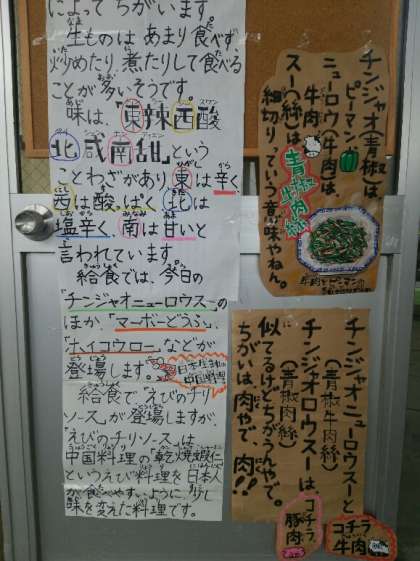 によって ちがいます。
生ものは あまり 食べず、
炒めたり 煮たりして 食べる
ことが 多いそうです。
味は、「東辣西酸
北咸南甜」という
ことわざがあり 東は辛く、
西は酸っぱく 北は
塩辛く、南は甘いと
言われています。
給食では、今日の
「チンジャオニューロウス」の
ほか、「マーボーどうふ」、
「ホイコウロー」などが
登場します。
給食で、えびのチリ
ソースが登場しますが、
「えびのチリソースは
中国料理の「乾焼蝦仁」
というえび料理を日本人
が食べやすいように、少し
味を変えた料理です。
チンジャオ(青椒)は、
ピーマン
ニューロウ(牛肉)は、
牛肉
スー(絲)は、
細切りっていう意味やねん。
青椒牛肉絲
チンジャオニューロウスーと
(青椒牛肉絲)
チンジャオロウスーは、
(青椒肉絲)
似てるけどちがうんやで。
ちがいは、肉やで、肉!!
コチラ
牛肉
コチラ
豚肉